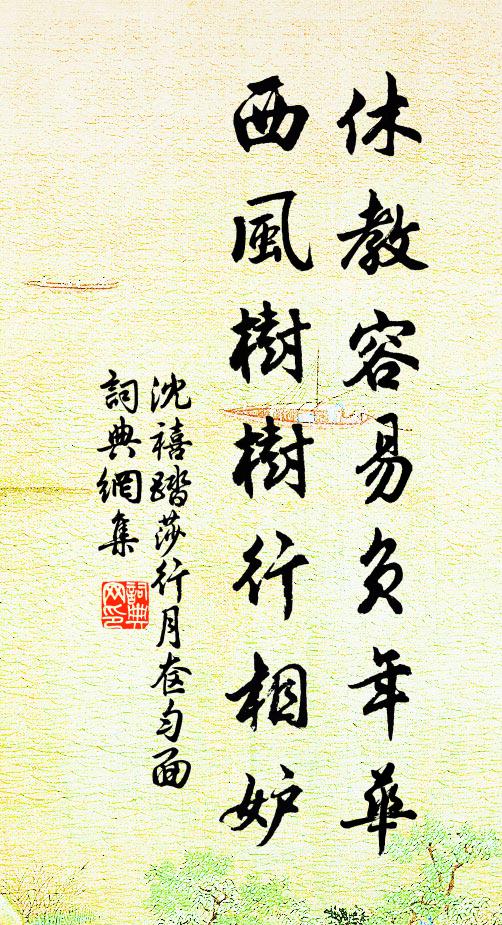 休教容易負年華
西風樹樹行相妒
沈禧踏莎行月奁勻面
詞典網集
詞典网印